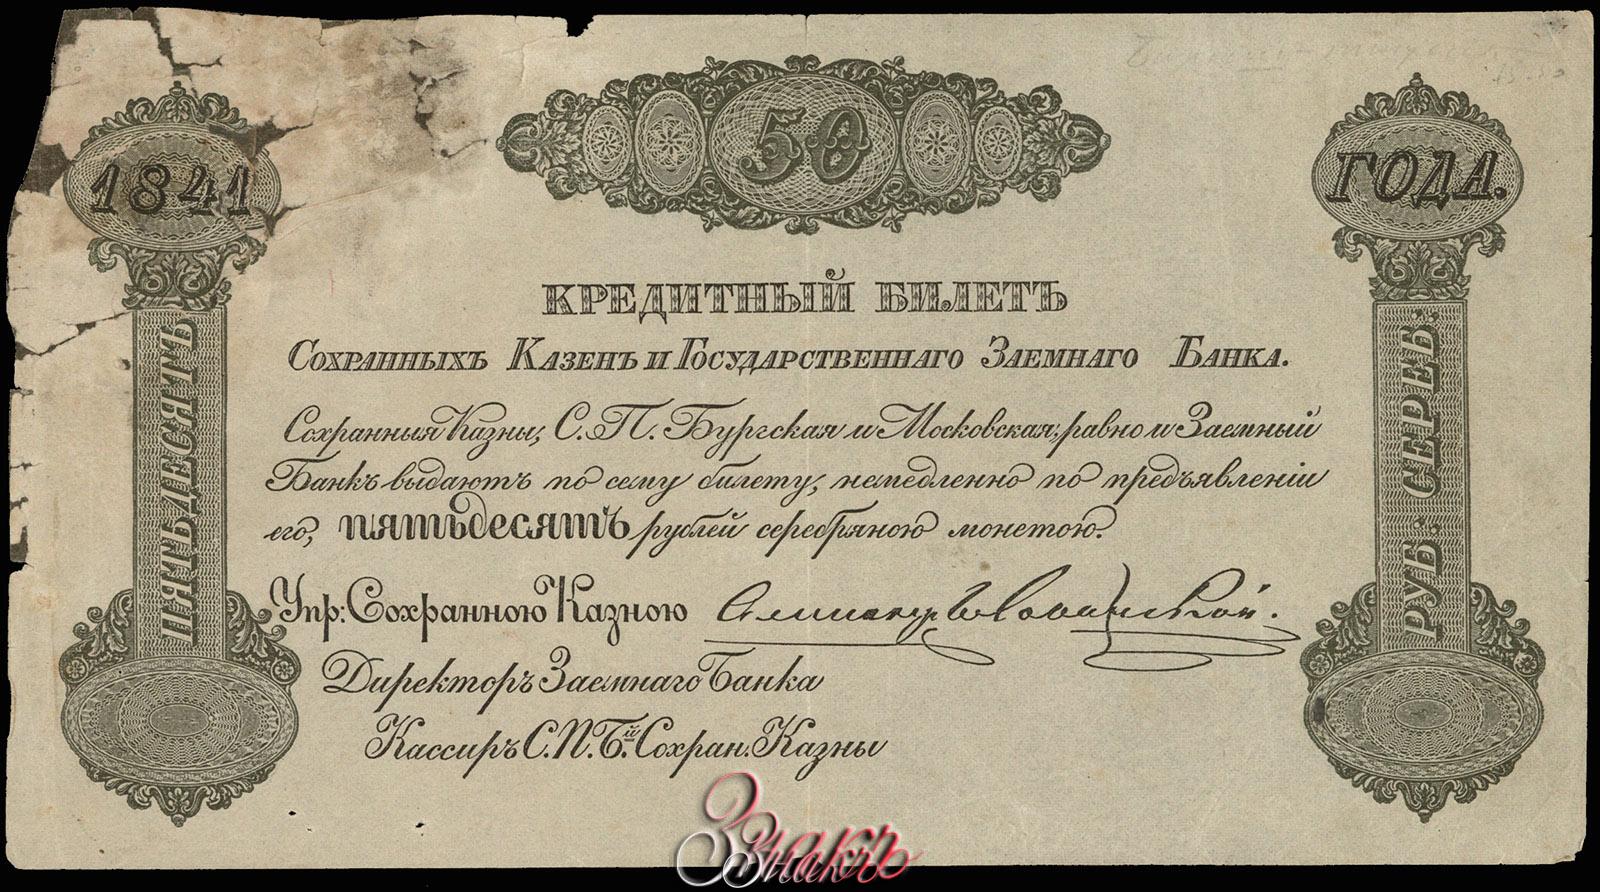 50
1841
ГОДА.
КРЕДИТНЫЙ БИЛЕТЪ
СОХРАННЫХЪ КАЗЕНЪ И ГОСУДАРСТВЕННАГО ЗАЕМНАГО БАНКА.
ПЯТЬДЕСЯТЪ
РУБ: СЕРЕБ:
Сохранныя Казны, С.П.Бургская и Московская, равно и Заемный
Банкъ выдаютъ по сему билету, немедленно по предъявленіи
его, пятьдесятъ рублей серебряною монетою.
Упр: Сохранною Казною
Директоръ Заемнаго Банка
Кассиръ С.П.Б.ій Сохран. Казны
Знакъ